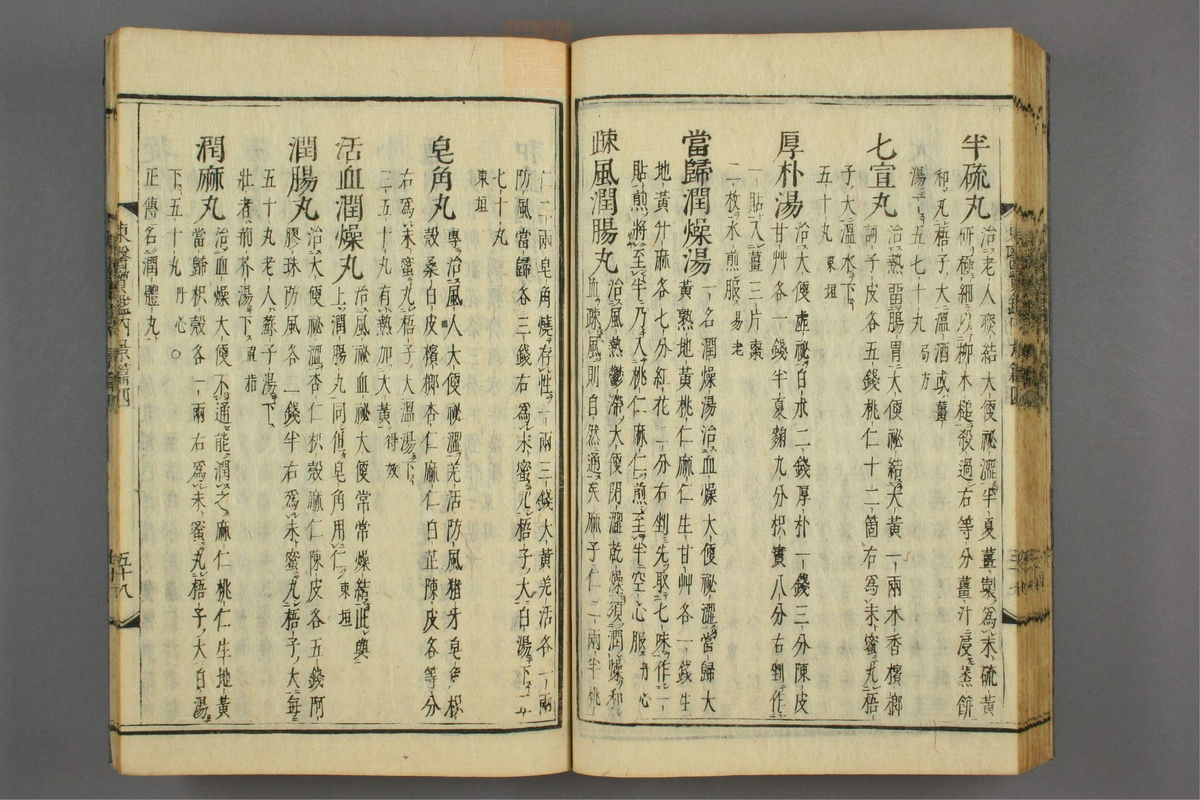 半硫丸 治老人䐈結大便祕澀半夏薑製爲末硫黃
研極細以柳木槌殺過右等分薑汁浸蒸餠
和丸梧子大溫酒或薑
湯下五七十丸 局方
七宣丸 治熱留腸胃大便祕結大黃一兩木香檳榔
訶子皮各五錢桃仁十二箇右爲末蜜丸梧
子大溫水下
五十丸 東垣
厚朴湯 治大便虛祕白朮二錢厚朴一錢三分陳皮
甘艸各一錢半夏麴九分枳實八分右剉作
一貼入薑三片棗
二枚水煎服 易老
當歸潤燥湯 一名潤燥湯治血燥大便祕澀當歸大
黃熟地黃桃仁麻仁生甘艸各一錢生
地黃升麻各七分紅花二分右剉先取七味作一
貼煎將至半乃入桃仁麻仁煎至半空心服 丹心
疎風潤腸丸 治風熱鬱滯大便閉澀乾燥須潤燥和
血疎風則自然通矣麻子仁二兩半桃
仁二兩皂角燒存性一兩三錢大黃羌活各一兩
防風當歸各三錢右爲末蜜丸梧子大白湯下五
七十丸
東垣
皂角丸 專治風人大便祕澀羌活防風猪牙皂角枳
殼桑白皮檳榔杏仁麻仁白芷陳皮各等分
右爲末蜜丸梧子大溫湯下
三十五丸有熱加大黃 得效
活血潤燥丸 治風祕血祕大便常常燥結此與
上潤腸丸同但皂角用仁 東垣
潤腸丸 治大便祕澀杏仁枳殼麻仁陳皮各五錢阿
膠珠防風各二錢半右爲末蜜丸梧子大每
五十丸老人蘇子湯下
壯者荊芥湯下 直指
潤麻丸 治血燥大便不通能潤之麻仁桃仁生地黃
當歸枳殼各一兩右爲末蜜丸梧子大白湯
下五十丸 丹心○
正傳名潤體丸
東醫寶鑑內景篇四
五十八